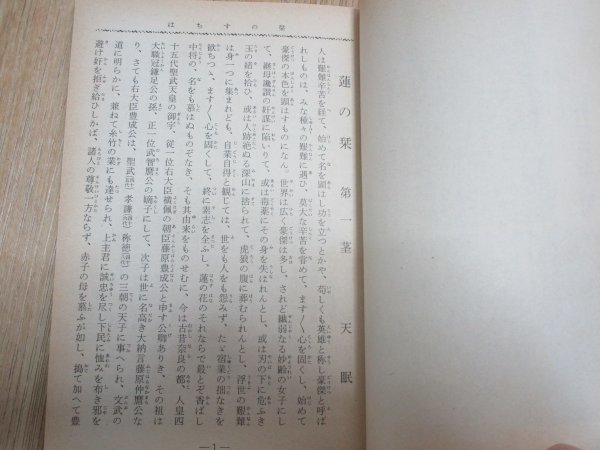 はちすの栞
蓮の栞 第一茎 天眠
人は艱難辛苦を経て、始めて名を顕はし功を立つとかや、苟しくも英雄と称し豪傑と呼ば
れしものは、みな種々の艱難に遇ひ、莫大な辛苦を嘗めて、ます〳〵心を固くし、始めて
豪傑の本色を顕はすものになん。世界は広く豪傑は多し、されど繊弱なる妙齢の女子にし
て、継母讒讃の奸謀に陥いりて、或は毒薬にその身を失はれんとし、或は刃の下に危ふき
玉の緒を拾ひ、或は人跡絶ゆる深山に捨られて、虎狼の腹に葬むられんとし、浮世の艱難
は身一つに集まれども、自業自得と観じては、世をも人をも怨みず、たゞ宿業の拙なきを
歎ちつゝ、ます〳〵心を固くして、終に素志を全ふし、蓮の花のそれならで最とぞ香ばし
中将の、名をも慕はぬものぞなき、そも其由来をものせむに、今は古昔奈良の都、人皇四
十五代聖武天皇の御宇、従一位右大臣横佩の朝臣藤原豊成公と申す公卿ありき、その祖は
大職冠鎌足公の孫、正一位武智麿公の嫡子にして、次子は世に名高き大納言藤原仲麿公な
り、さても右大臣豊成公は、聖武 孝謙 称徳 の三朝の天子に事へられ、文武の
道に明らかに、兼ねて糸竹の業にも達せられ、上主君に誠忠を尽し下民に恤みを布き邪を
避け奸を拒ぎ給ひしかば、諸人の尊敬一方ならず、赤子の母を慕ふが如し、搗て加へて豊
—1—